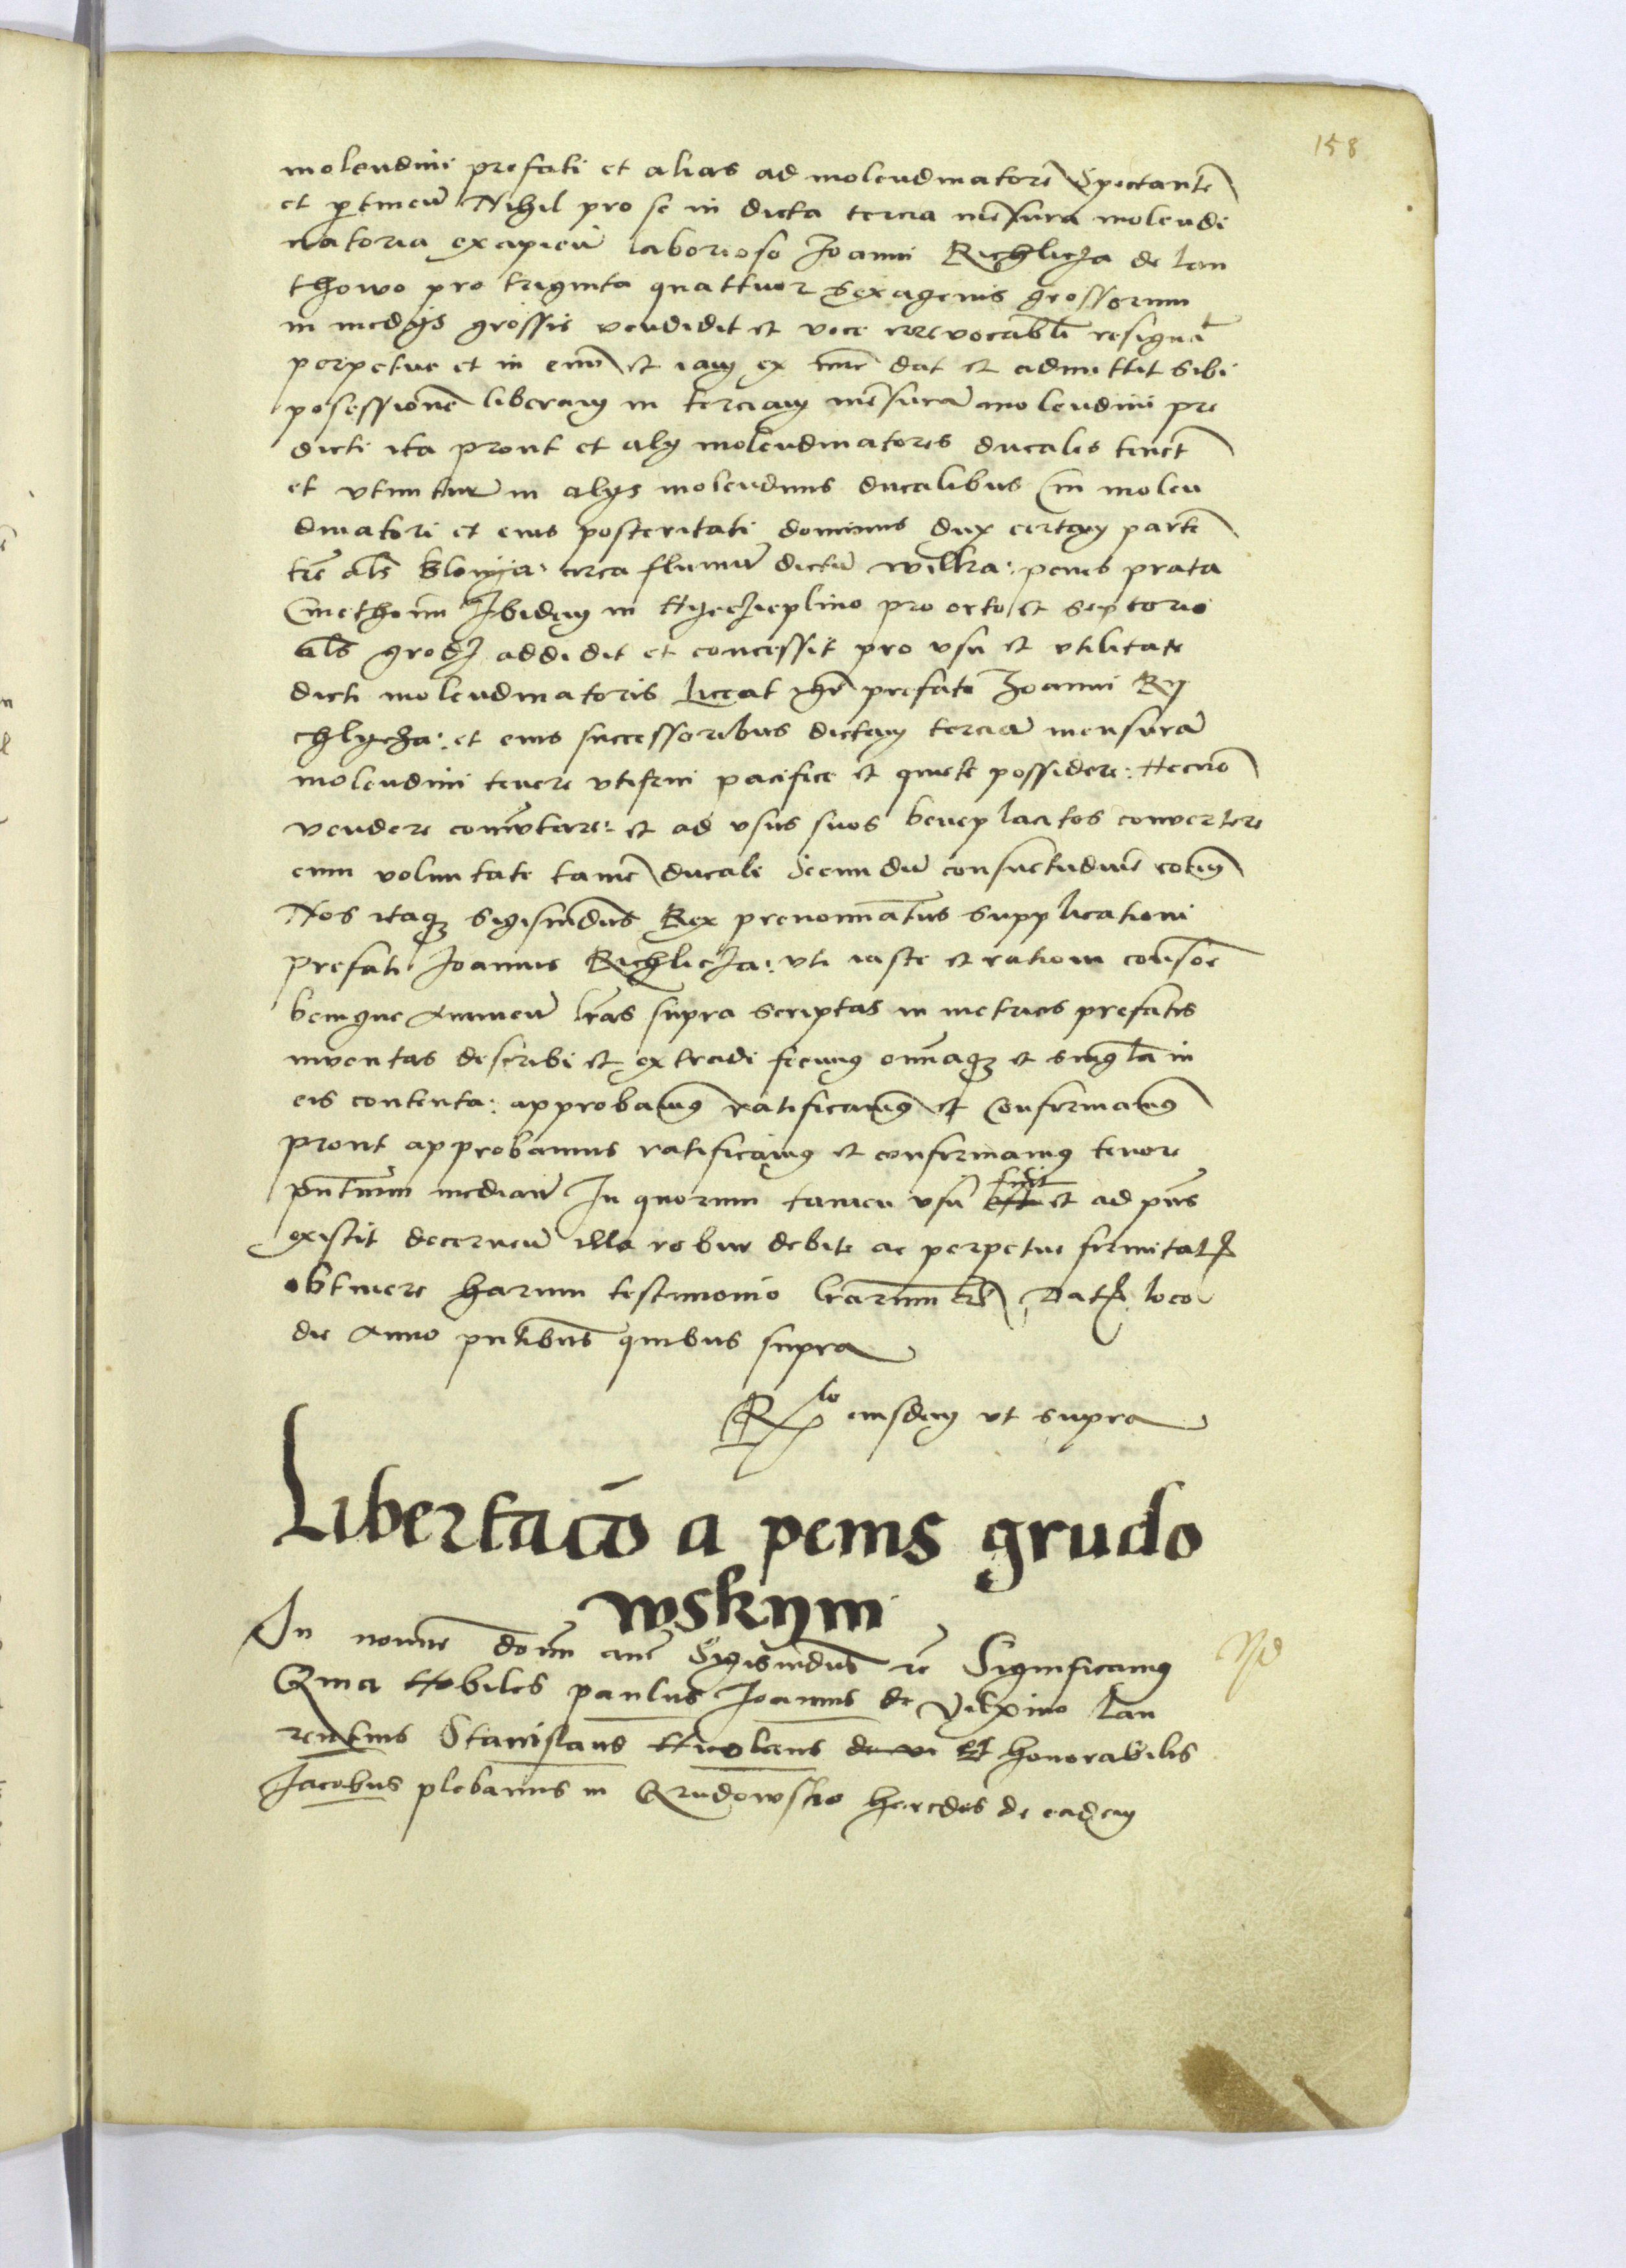 158
molendini prefati et alias ad molendinatorē Spectantē
et ꝑtineñ Nihil pro se in dicta tercia mēsura molendi
natoria excipieñ laborioso Joanni Richlicza de lan
thowo pro triginta quattuor sexagenis grossorum
in medijs grossis vendidit et voce irrevocabłi resignat
perpetue et in eum et iam ex nunc dat et admittit sibi
possessionē liberam in terciam mēsurā molendini pre
dicti ita prout et alij molendinatores ducales tenēt
et vtuntur in alijs molendinis ducalibus Cui molen
dinatori et eius posteritati dominus dux certam partē
trē als blonya: circa fluuiū dictū wilka: penes prata
Cmethonū Ibidem in Nyeczieplino pro orto et septorio
als grodz addidit et concessit pro vsu et vtilitate
dicti molendinatoris Liceat igr̄ prefato Joanni Ry
chlycza: et eius successoribus dictam terciā mensurā
molendini tenere vtifrui pacifice et quiete possidere: Necnō
vendere comutare: et ad vsus suos beneplacitos convertere
cum voluntate tamē ducali Secundū consuetudinē eorum
Nos itaqꝫ Sigismūdus Rex prenominatus supplicationi
prefati Joannis Richlicza: vti iuste et rationi consone
benigne Annueñ lras supra scriptas in metricis prefatis
inventas describi et extradi fecimus omniaqꝫ et singula in
eis contenta: approbavimus ratificavimus et Confirmavimus
prout approbamus ratificamus et confirmamus tenore
pñtium mediañ In quorum tamen vsu est fuit et ad pñs
existit decerneñ illa robur debite ac perpetue firmitatis
obtinere harum testimonio lrarum etc Datum loco
die Anno pñtibus quibus supra
Rlo eiusdem vt supra
Libertacō a penis grudo
wskym
In nomine dom̄ amē Sigismūdus rē Significamus
Quia Nobiles paulus Joannis de Vilxino Lau
rentius Stanislaus Nicolaus de vi et honorabilis
Jacobus plebanus in Grudowsko heredes de eadem